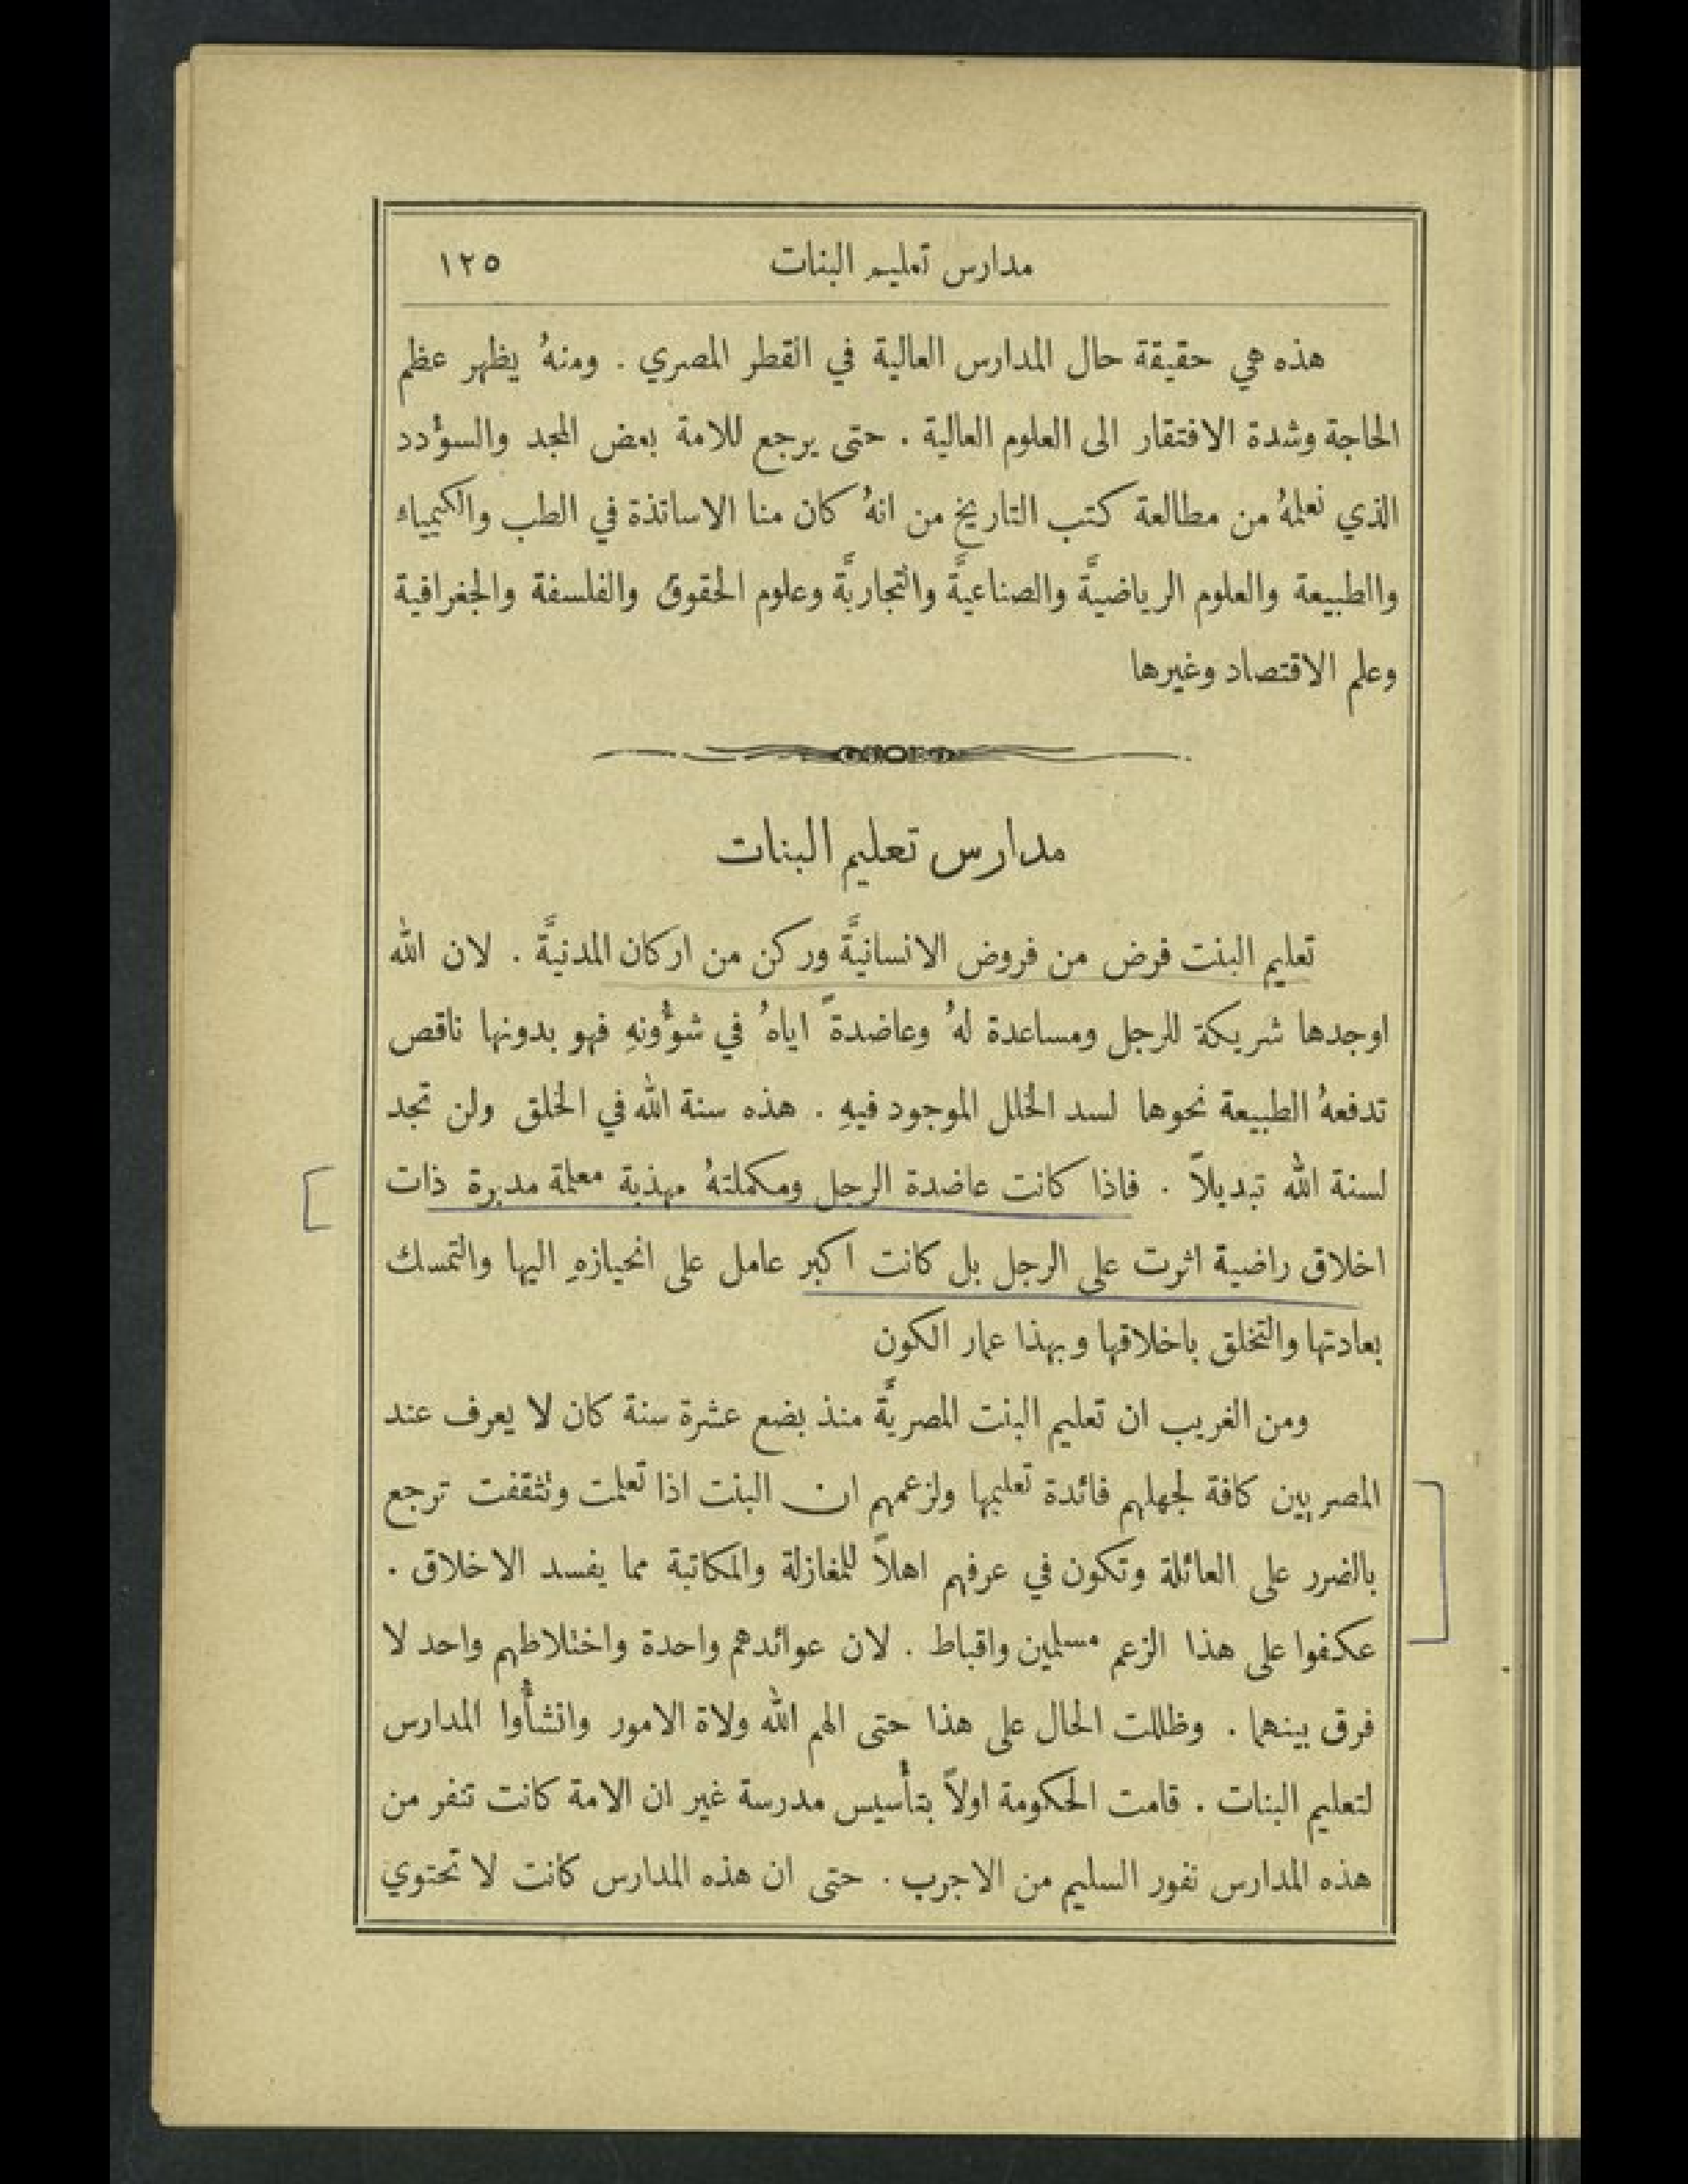 مدارس تعليم البنات ١٢٥
هذه هي حقيقة حال المدارس العالية في القطر المصري . ومنهُ يظهر عظم
الحاجة وشدة الافتقار الى العلوم العالية . حتى يرجع للامة بعض المجد والسؤدد
الذي نعلمهُ من مطالعة كتب التاريخ من انهُ كان منا الاساتذة في الطب والكيمياء
والطبيعة والعلوم الرياضيَّة والصناعيَّة والتجاريَّة وعلوم الحقوق والفلسفة والجغرافية
وعلم الاقتصاد وغيرها
مدارس تعليم البنات
تعليم البنت فرض من فروض الانسانيَّة وركن من اركان المدنيَّة . لان الله
اوجدها شريكة للرجل ومساعدة لهُ وعاضدةً اياهُ في شؤُونهِ فهو بدونها ناقص
تدفعهُ الطبيعة نحوها لسد الخلل الموجود فيهِ . هذه سنة الله في الخلق ولن تجد
لسنة الله تبديلاً . فاذا كانت عاضدة الرجل ومكملتهُ مهذبة معلمة مدبرة ذات
اخلاق راضية اثرت على الرجل بل كانت اكبر عامل على انحيازهِ اليها والتمسك
بعادتها والتخلق باخلاقها وبهذا عمار الكون
ومن الغريب ان تعليم البنت المصريَّة منذ بضع عشرة سنة كان لا يعرف عند
المصريين كافة لجهلهم فائدة تعليمها ولزعمهم ان البنت اذا تعلمت وتثقفت ترجع
بالضرر على العائلة وتكون في عرفهم اهلاً للمغازلة والمكاتبة مما يفسد الاخلاق .
عكفوا على هذا الزعم مسلمين واقباط . لان عوائدهم واحدة واختلاطهم واحد لا
فرق بينهما . وظللت الحال على هذا حتى الهم الله ولاة الامور وانشأُوا المدارس
لتعليم البنات . قامت الحكومة اولاً بتأسيس مدرسة غير ان الامة كانت تنفر من
هذه المدارس نفور السليم من الاجرب . حتى ان هذه المدارس كانت لا تحتوي